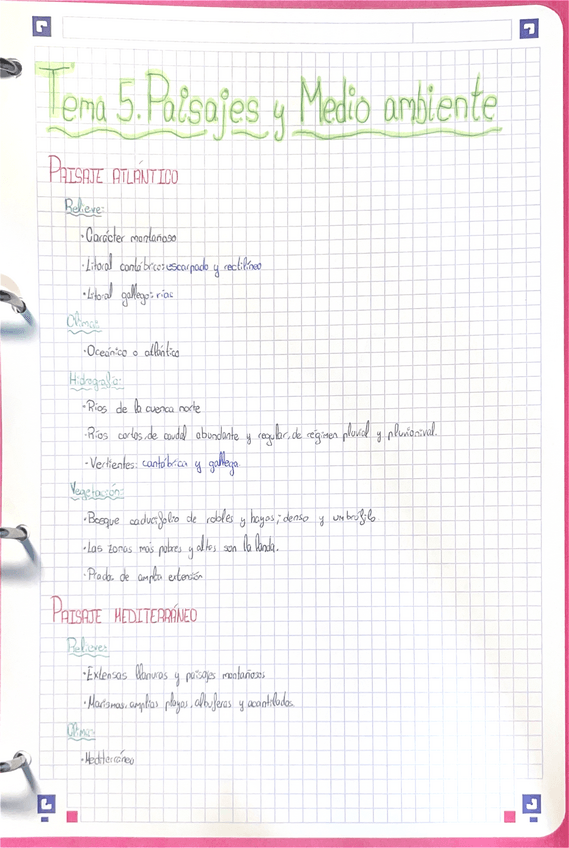 Tema 5. Paisajes y Medio ambiente
PAISAJE ATLÁNTICO
Relieve:
·Carácter montañoso
·Litoral cantábrico: escarpado y rectilíneo
·Litoral gallego: rías
Clima:
·Oceánico o atlántico
Hidrografía:
·Ríos de la cuenca norte
·Ríos cortos, de caudal abundante y regular, de régimen pluvial y pluvionival.
·Vertientes: cantábrica y gallega
Vegetación:
·Bosque caducifolio de robles y hayas; denso y umbrófilo.
·Las zonas más pobres y altas son la landa.
·Prados de amplia extensión
PAISAJE MEDITERRÁNEO
Relieve:
·Extensas llanuras y paisajes montañosos
·Marismas, amplias playas, albuferas y acantilados.
Clima:
·Mediterráneo